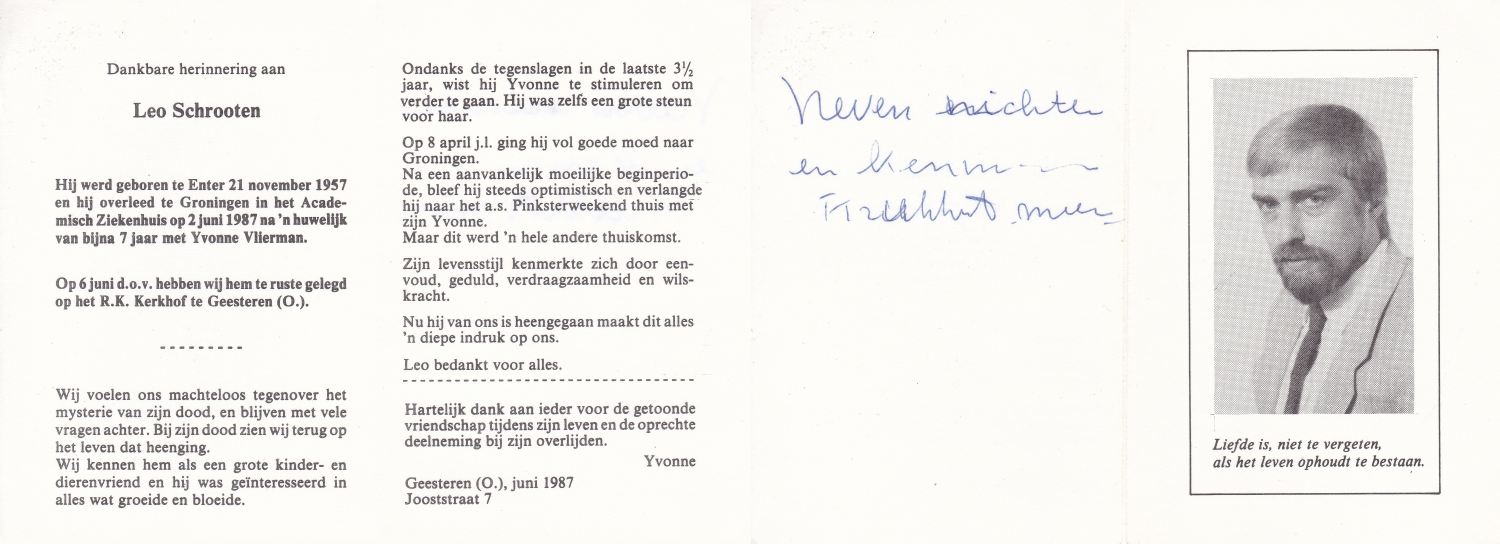 Dankbare herinnering aan
Leo Schrooten
Hij werd geboren te Enter 21 november 1957
en hij overleed te Groningen in het Acade-
misch Ziekenhuis op 2 juni 1987 na 'n huwelijk
van bijna 7 jaar met Yvonne Vlierman.
Op 6 juni d.o.v. hebben wij hem te ruste gelegd
op het R.K. Kerkhof te Geesteren (O.).
---------
Wij voelen ons machteloos tegenover het
mysterie van zijn dood, en blijven met vele
vragen achter. Bij zijn dood zien wij terug op
het leven dat heenging.
Wij kennen hem als een grote kinder- en
dierenvriend en hij was geïnteresseerd in
alles wat groeide en bloeide.
Ondanks de tegenslagen in de laatste 3½
jaar, wist hij Yvonne te stimuleren om
verder te gaan. Hij was zelfs een grote steun
voor haar.
Op 8 april j.l. ging hij vol goede moed naar
Groningen.
Na een aanvankelijk moeilijke beginperio-
de, bleef hij steeds optimistisch en verlangde
hij naar het a.s. Pinksterweekend thuis met
zijn Yvonne.
Maar dit werd 'n hele andere thuiskomst.
Zijn levensstijl kenmerkte zich door een-
voud, geduld, verdraagzaamheid en wils-
kracht.
Nu hij van ons is heengegaan maakt dit alles
'n diepe indruk op ons.
Leo bedankt voor alles.
--------------------------------
Hartelijk dank aan ieder voor de getoonde
vriendschap tijdens zijn leven en de oprechte
deelneming bij zijn overlijden.
Yvonne
Geesteren (O.), juni 1987
Jooststraat 7
Neven nichten
en
Liefde is, niet te vergeten,
als het leven ophoudt te bestaan.